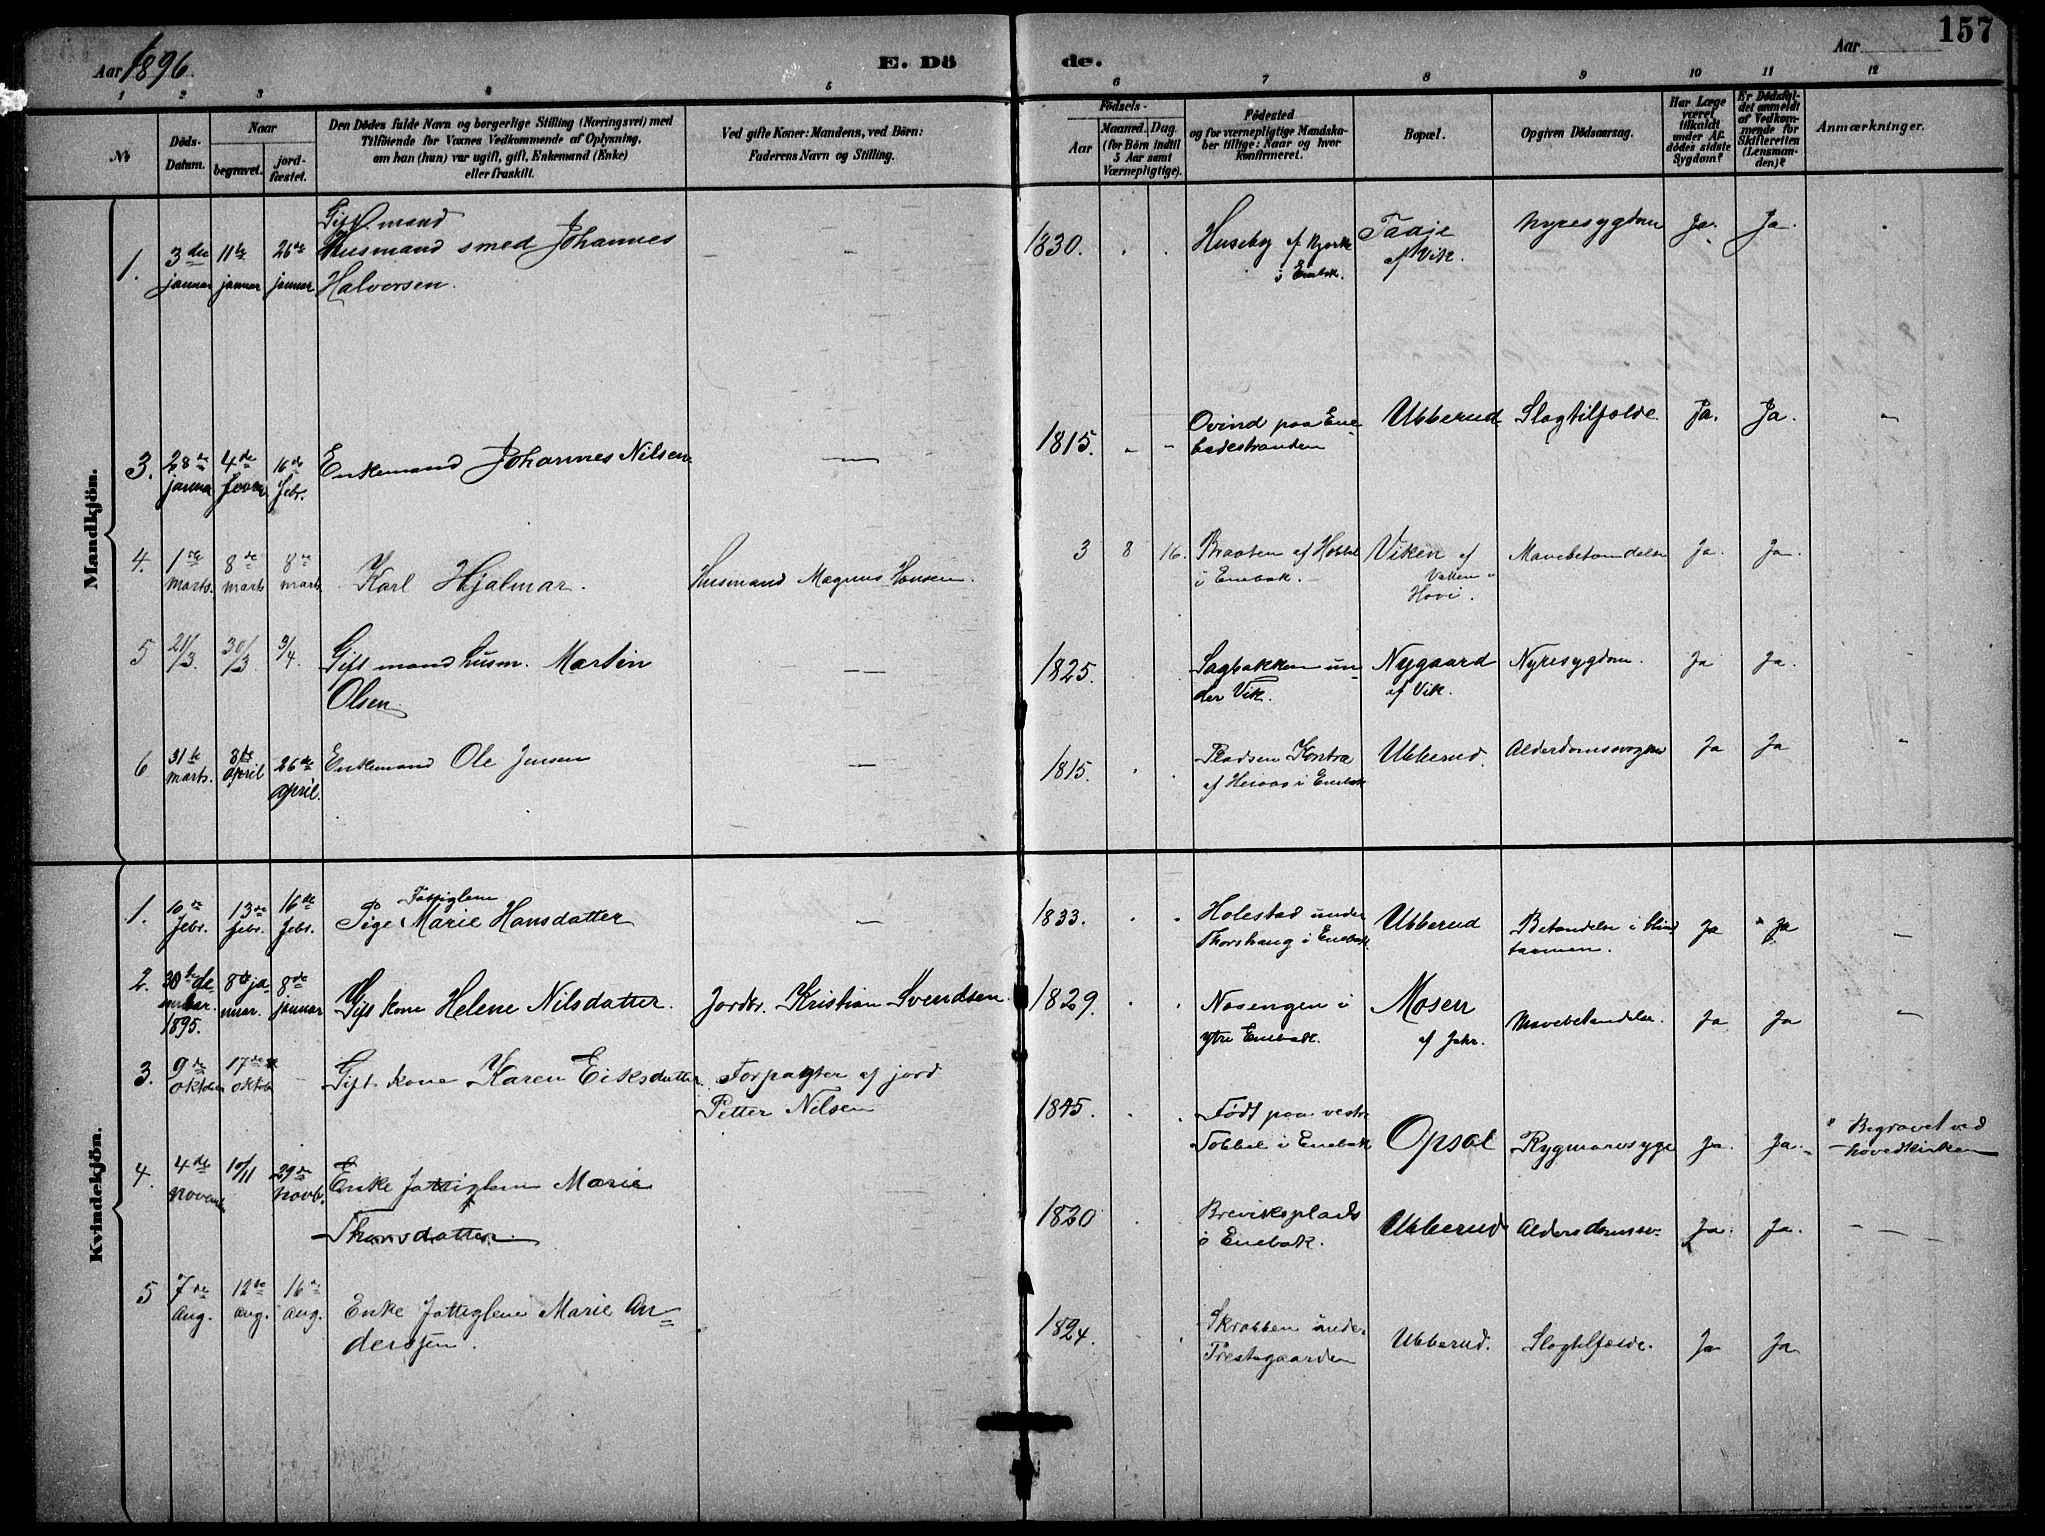 Aar 1896.
E. Dö
de.
Aar
157
1 2 3 4 5 6 7 8 9 10 11 12
No
Döds-
Datum.
Naar
begravet.
jord-
fæstet.
Den Dödes fulde Navn og borgerlige Stilling (Næringsvei) med
Tilföiende for Voxnes Vedkommende af Oplysning,
om han (hun) var ugift, gift, Enkemand (Enke)
eller fraskilt.
Ved gifte Koner: Mandens, ved Börn:
Faderens Navn og Stilling.
Födsels-
Aar
Maaned. Dag.
(for Börn indtil
5 Aar samt
Værnepligtige).
Födested
og for værnepligtige Mandska-
ber tillige: Naar og hvor
konfirmeret.
Bopæl.
Opgiven Dödsaarsag.
Har Læge
været
tilkaldt
under Af-
dödes sidste
Sygdom?
Er Dödsfal-
det anmeldt
af Vedkom-
mende for
Skifteretten
(Lensman-
den)?
Anmærkninger.
Mandkjön.
1. 3die januar 11te januar 26de januar
Gift mand
Husmand smed Johannes
Halvorsen.
1830.
Huseby af
i Enebak.
Taaje
af Vik.
Nyresygdom Ja. Ja.
3. 28de januar 4de 16de febr.
Enkemand Johannes Nilsen
1815.
Ovind paa Ene-
bakstranden
Ubberud Slagtilfælde. Ja. Ja.
4. 1ste marts. 8de marts 8de marts
Karl Hjalmar.
Husmand Magnus Hansen.
3 8 16.
Braaten af
i Enebak.
Viken af
Hovi.
Mavebetændelse Ja. Ja.
5 21/3. 30/3 3/4.
Gift mand husm. Martin
Olsen
1825.
Sagbakken un-
der Vik.
Nygaard
af Vik.
Nyresygdom. Ja Ja.
6 31te marts. 8de april 26de april.
Enkemand Ole Jensen
1815.
Pladsen Kontra
af i Enebak
Ubberud. Ja Ja
Kvindekjön.
1. 10de febr. 13de febr. 16de febr.
Fattiglem
Pige Marie Hansdatter
1833.
Holestad under
Thorshaug i Enebak
Ubberud
Betændelse i blind
tarmen.
Ja Ja
2. 30te de-
cember
1895.
8de ja-
nuar.
8de januar
Gift kone Helene Nilsdatter.
Jordbr. Kristian Svendsen.
1829.
Nosengen i
ytre Enebak.
Mosen
af Jahr.
Mavebetændelse. Ja Ja
3. 9de oktober 17de oktbr
Gift kone Karen Eriksdatter.
Forpagter af jord
Petter Nilsen
1845.
Født paa vestre
Tobbel i Enebak
Opsal Rygmarvssyge Ja. Ja.
Begravet ved
hovedkirken
4. 4de november 10/11 29de novb.
Enke fattiglem Marie
Thorsdatter.
1820
Breviksplads
i Enebak.
Ubberud Aldersdomssv. Ja. Ja.
5 7de aug. 12te aug. 16de aug.
Enke fattiglem Marie An-
dersen.
1824.
Skrabben under
Prestegaarden
Ubberud. Slagtilfælde. Ja Ja